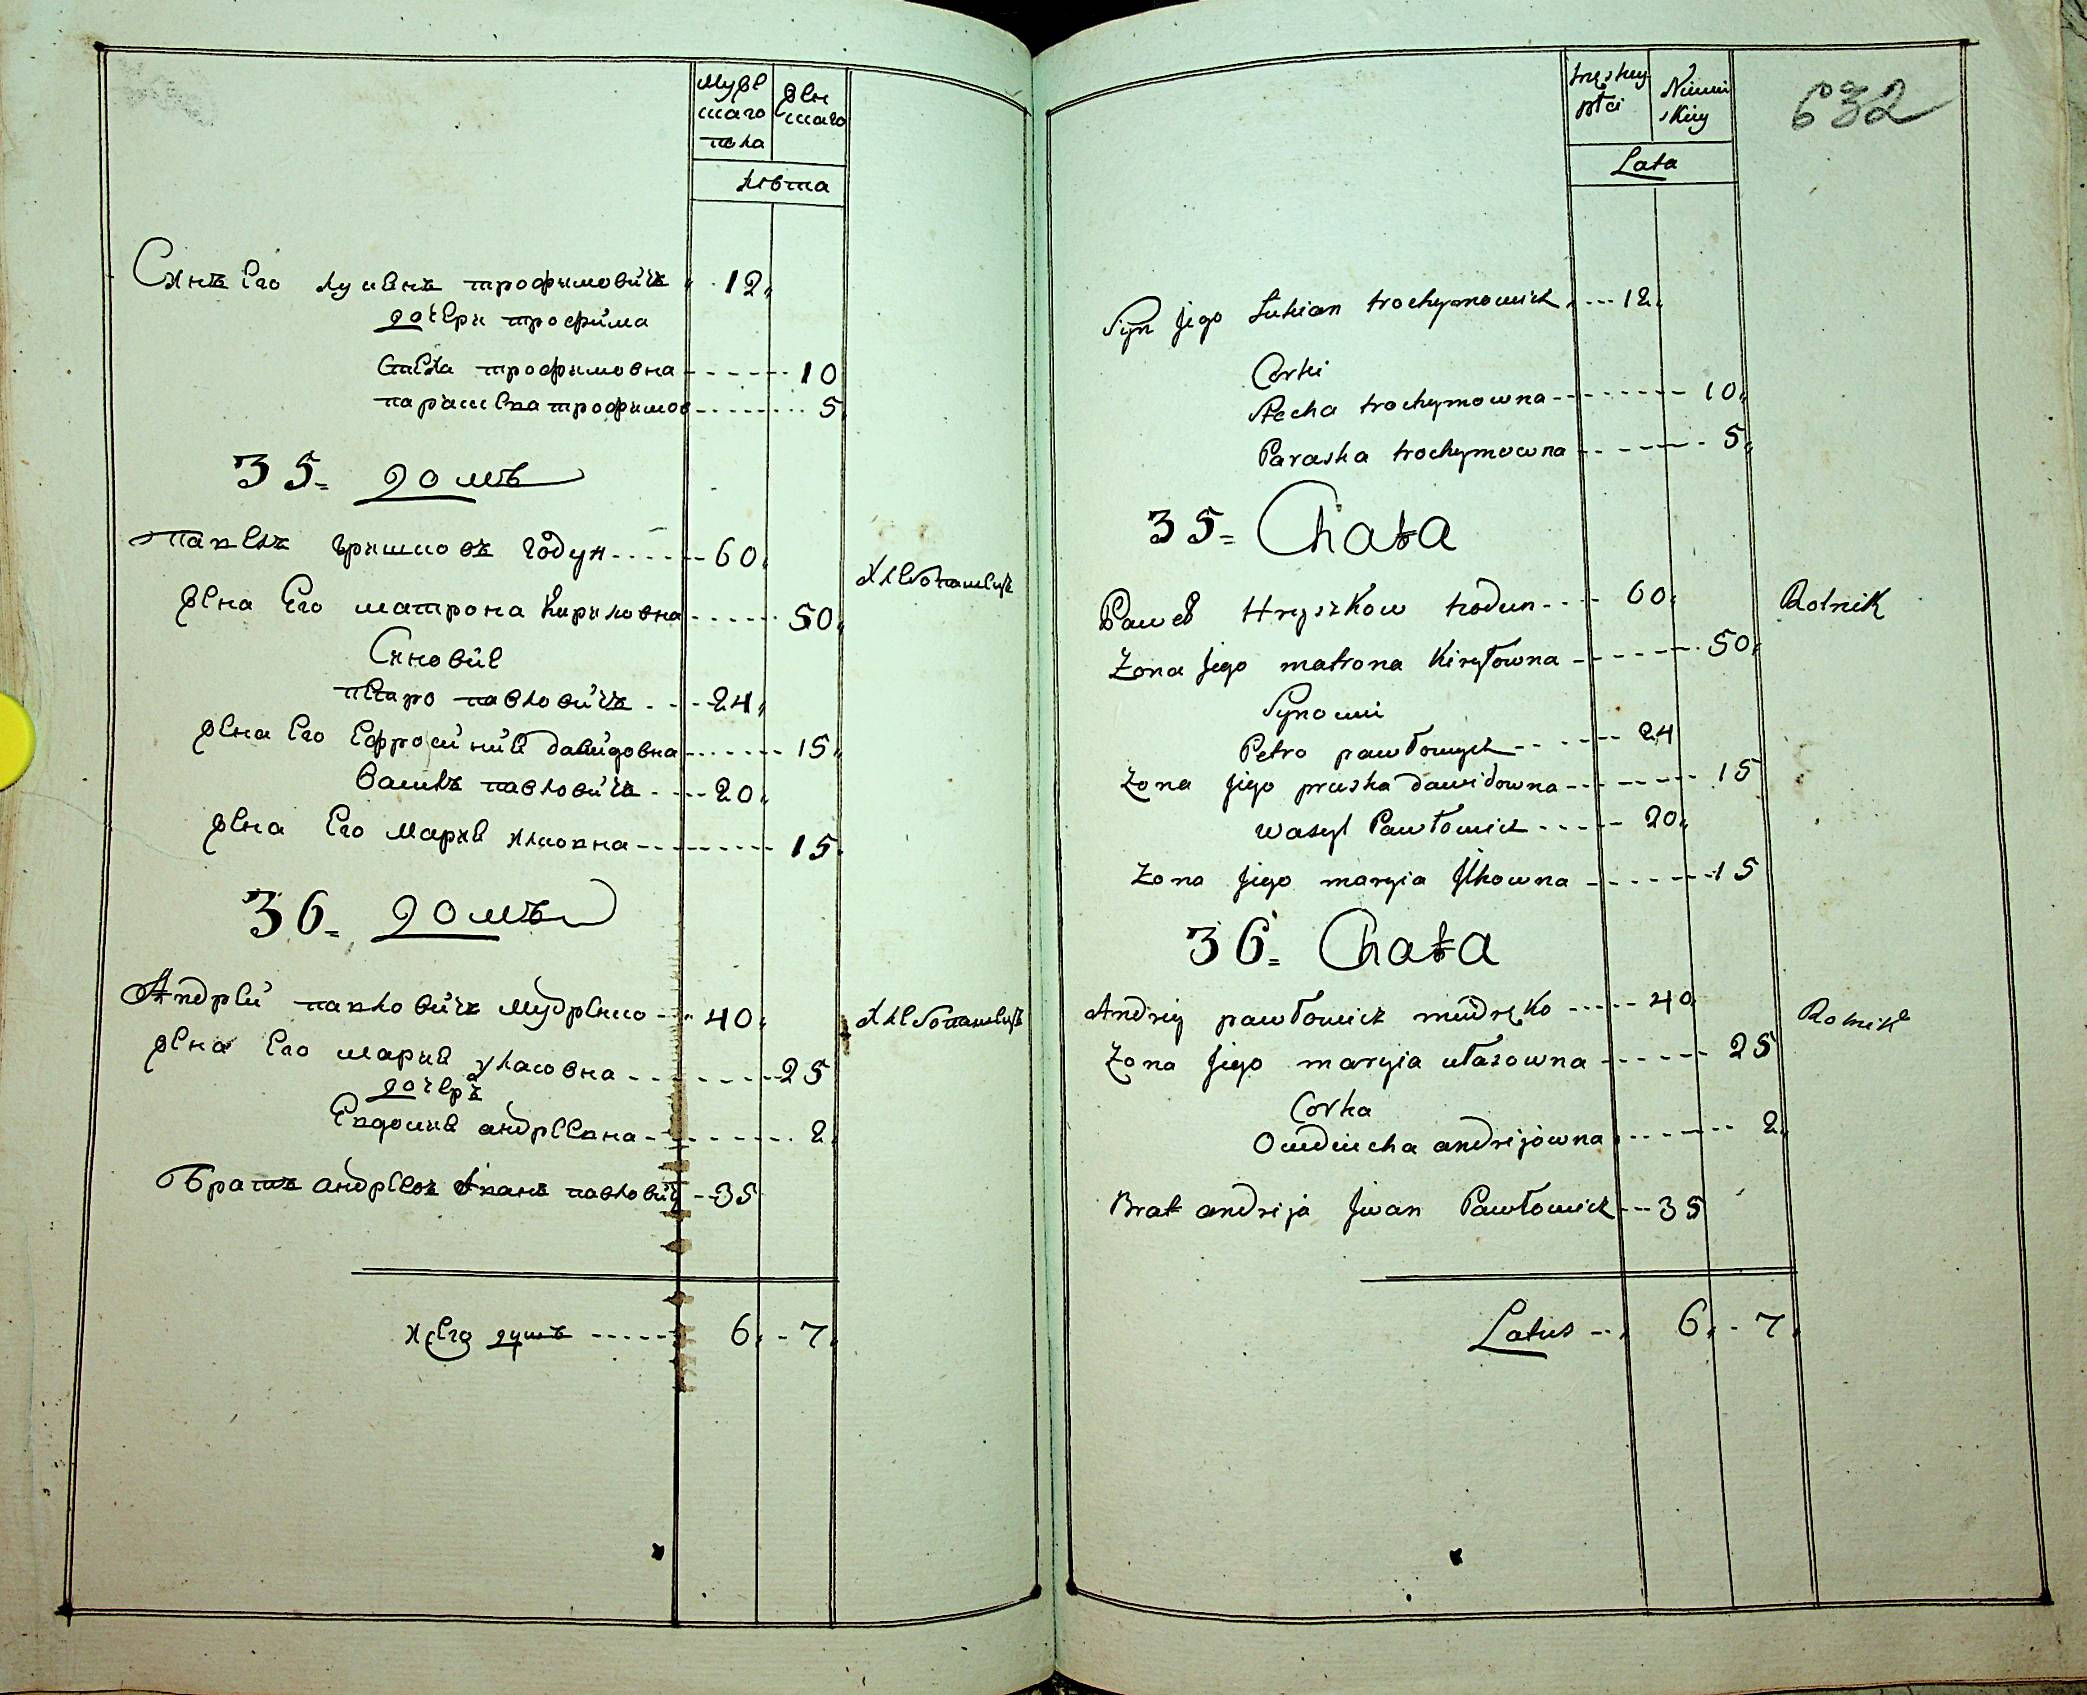 Мужε
скаго
пола
жен
скаго
лѣта
Сынъ Его лукиянъ трофимовичъ 12
дочери трофима
Стеха трофимовна 10
параскева трофимов 5
35 = домъ
павелъ гришковъ годун 60
жена Его матрона кириловна 50
хлебопашецъ
Сыновие
петро павловичъ 24
жена Его Ефросиния давидовна 15
василь павловичъ 20
жена Его Мария илковна 15
36 = домъ
Андрей павловичъ мудренко 40
хлебопашецъ
жена Его мария уласовна 25
дочеръ
Евдокия андреевна 2
Братъ андреевъ Иванъ павловичъ 35
всего душъ 6 7
męskiey
płci
Niewie
skiey
Lata
632
Syn jego Łukian trochymowicz 12
Corki
Stecha trochymowna 10
Paraska trochymowna 5
35 = Chata
Paweł Hryszkow hodun 60
Rolnik
Zona jego matrona Kiryłowna 50
Synowie
Petro pawłowycz 24
Zona jego pruska dawidowna 15
Wasyl Pawłowicz 20
Zona jego maryia Jlkowna 15
36 = Chata
Andriy pawłowicz mudręko 40
Rolnik
Zona jego maryia ułasowna 25
Corka
Owdiucha andrijowna 2
Brat andrija Jwan Pawłowicz 35
Latus 6 7